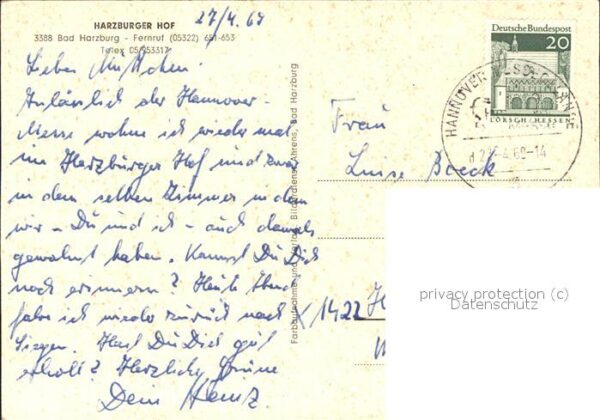 HARZBURGER HOF
3388 Bad Harzburg - Fernruf (05322) 651-653
Telex 05/953317
27/4. 69
Liebes Muttchen!
Anlässlich der Hannover-
Messe wohne ich wieder mal
im Harzburger Hof und zwar
in dem selben Zimmer in dem
wir - Du und ich - auch damals
gewohnt haben. Kannst Du Dich
noch erinnern? Heute Abend
fahre ich wieder zurück nach
Siegen. Hast Du Dich gut
erholt? Herzliche Grüsse
Dein Heinz.
Bad Harzburg
Deutsche Bundespost
20
LORSCH/HESSEN
HANNOVER
-4.69-14
Frau
Luise Boeck
X 1422
privacy protection (c)
Datenschutz